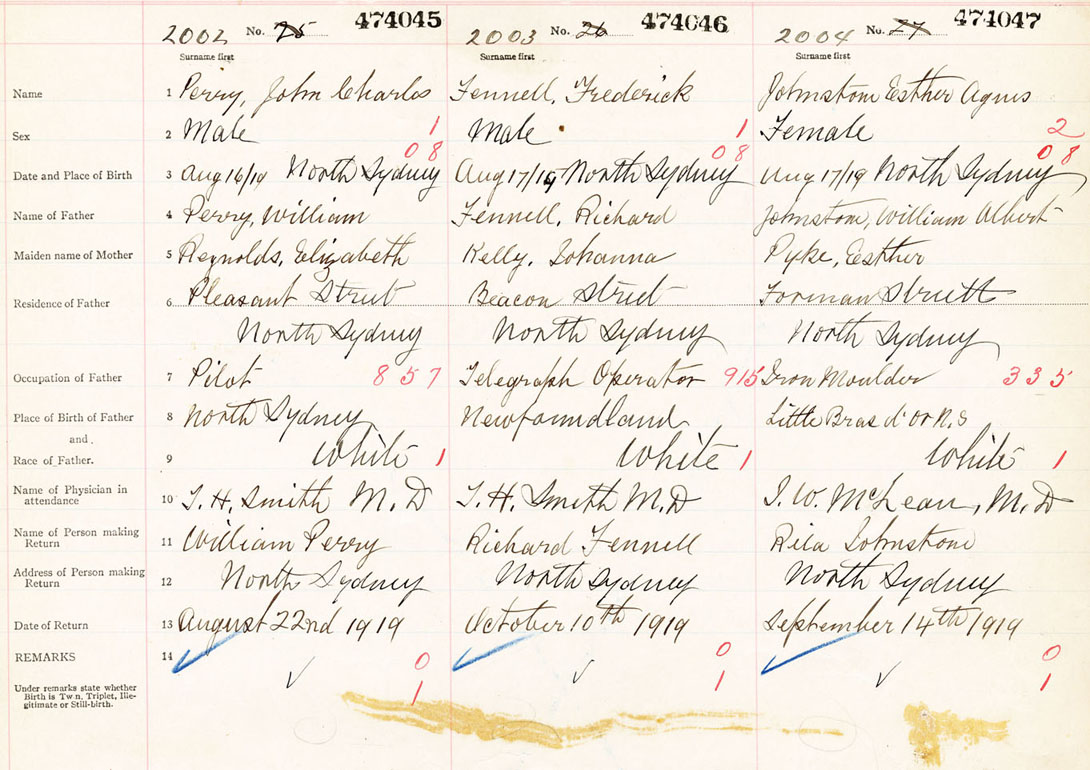 2002 No. 75 474045 2003 No. 26 474046 2004 No. 27 474047
Surname first Surname first Surname first
Name 1 Perry, John Charles Fennell, Frederick Johnstone Esther Agnes
Sex 2 Male 1 Male 1 Female 2
08 08 08
Date and Place of Birth 3 Aug 16/19 North Sydney Aug 17/19 North Sydney Aug 17/19 North Sydney
Name of Father 4 Perry, William Fennell, Richard Johnstone, William Albert
Maiden name of Mother 5 Reynolds, Elizabeth Kelly, Johanna Pyke, Esther
Residence of Father 6 Pleasant Street Beacon Street Forman Street
North Sydney North Sydney North Sydney
Occupation of Father 7 Pilot 857 Telegraph Operator 915 Iron Moulder 335
Place of Birth of Father 8 North Sydney Newfoundland Little Bras d'or N.S
and
Race of Father. 9 White 1 White 1 White 1
Name of Physician in
attendance 10 T. H. Smith M.D T. H. Smith M.D J. W. McLean, M.D
Name of Person making
Return 11 William Perry Richard Fennell Rita Johnstone
Address of Person making
Return 12 North Sydney North Sydney North Sydney
Date of Return 13 August 22nd 1919 October 10th 1919 September 14th 1919
REMARKS 14 0 0 0
Under remarks state whether
Birth is Twn, Triplet, Ille-
gitimate or Still-birth. 1 1 1